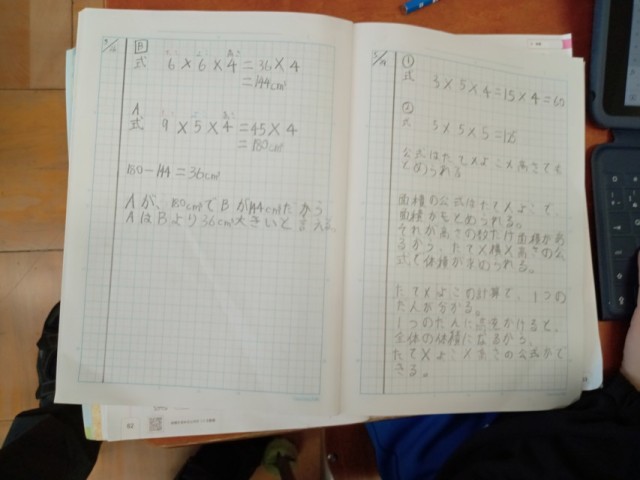 B
式 6×6×4=36×4
=144cm³
A
式 9×5×4=45×4
=180cm³
180-144=36cm³
Aが、180cm³でBが144cm³だから
AはBより36cm³大きいと言える。
①
式
3×5×4=15×4=60
②
式
5×5×5=125
公式はたて×よこ×高さでも
とめられる
面積の公式はたて×よこで、
面積がもとめられる。
それが高さの数だけ面積があ
るから、たて×横×高さの公
式で体積が求められる。
たて×よこの計算で、1つの
だんが分かる。
1つのだんに高さをかけると、
全体の体積になるから、
たて×よこ×高さの公式がで
きる。
62